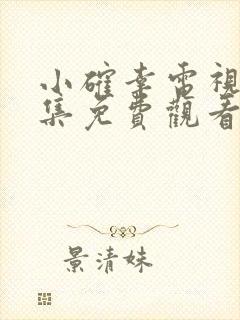 小確幸電視
集免費觀看
景清妹